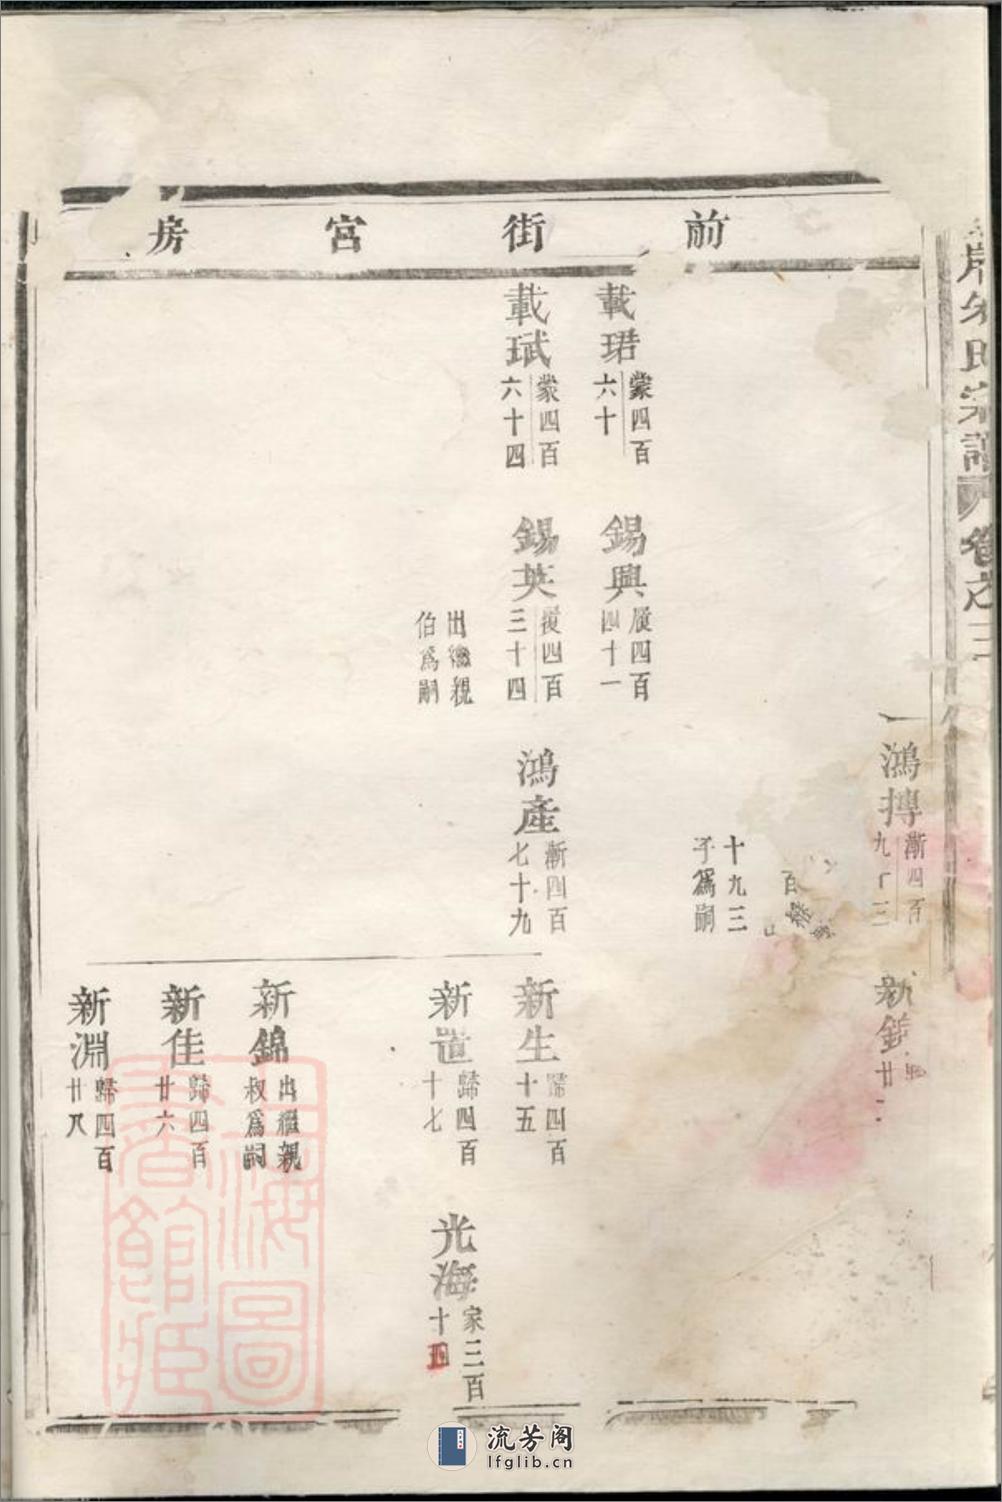 前街宮房
朱氏宗譜 卷之三
鴻摶 漸四百
九十三
新
廿
十九三
子為嗣
載珺 蒙四百
六十
錫興 履四百
四十一
載珷 蒙四百
六十四
錫英 履四百
三十四
鴻產 漸四百
七十九
新生 歸四百
十五
出繼親
伯為嗣
新道 歸四百
十七
光海 家三百
十四
新錦 出繼親
叔為嗣
新佳 歸四百
廿六
新淵 歸四百
廿八
上海圖書館藏
流芳阁
lfglib.cn